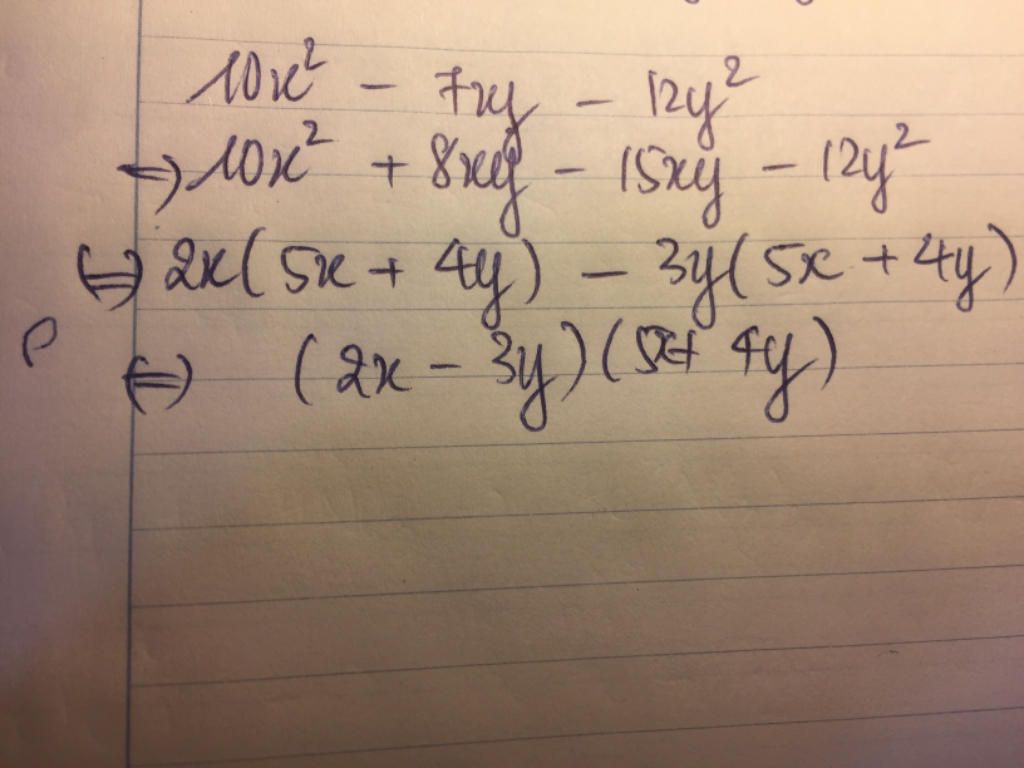 10x² - 7xy - 12y²
⇔ 10x² + 8xy - 15xy - 12y²
⇔ 2x(5x + 4y) - 3y(5x + 4y)
⇔ (2x - 3y)(5x + 4y)